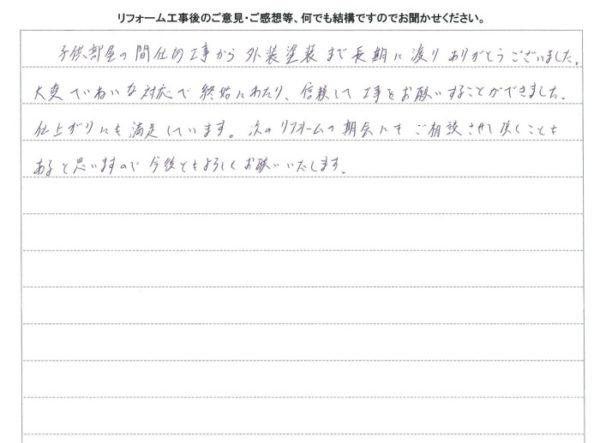 リフォーム工事後のご意見・ご感想等、何でも結構ですのでお聞かせください。
子供部屋の間仕切工事から外装塗装まで長期に渡りありがとうございました。
大変ていねいな対応で終始にわたり、信頼して工事をお願いすることができました。
仕上がりにも満足しています。次のリフォームの機会にもご相談させて頂くことも
あると思いますので今後ともよろしくお願いいたします。